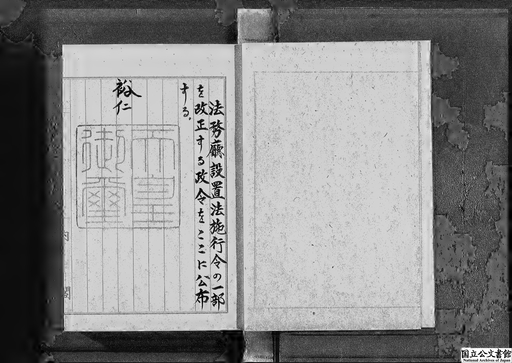 法務廳設置法施行令の一部
を改正する政令をここに公布
する。
裕仁
天皇
御璽
内
閣
国立公文書館
National Archives of Japan